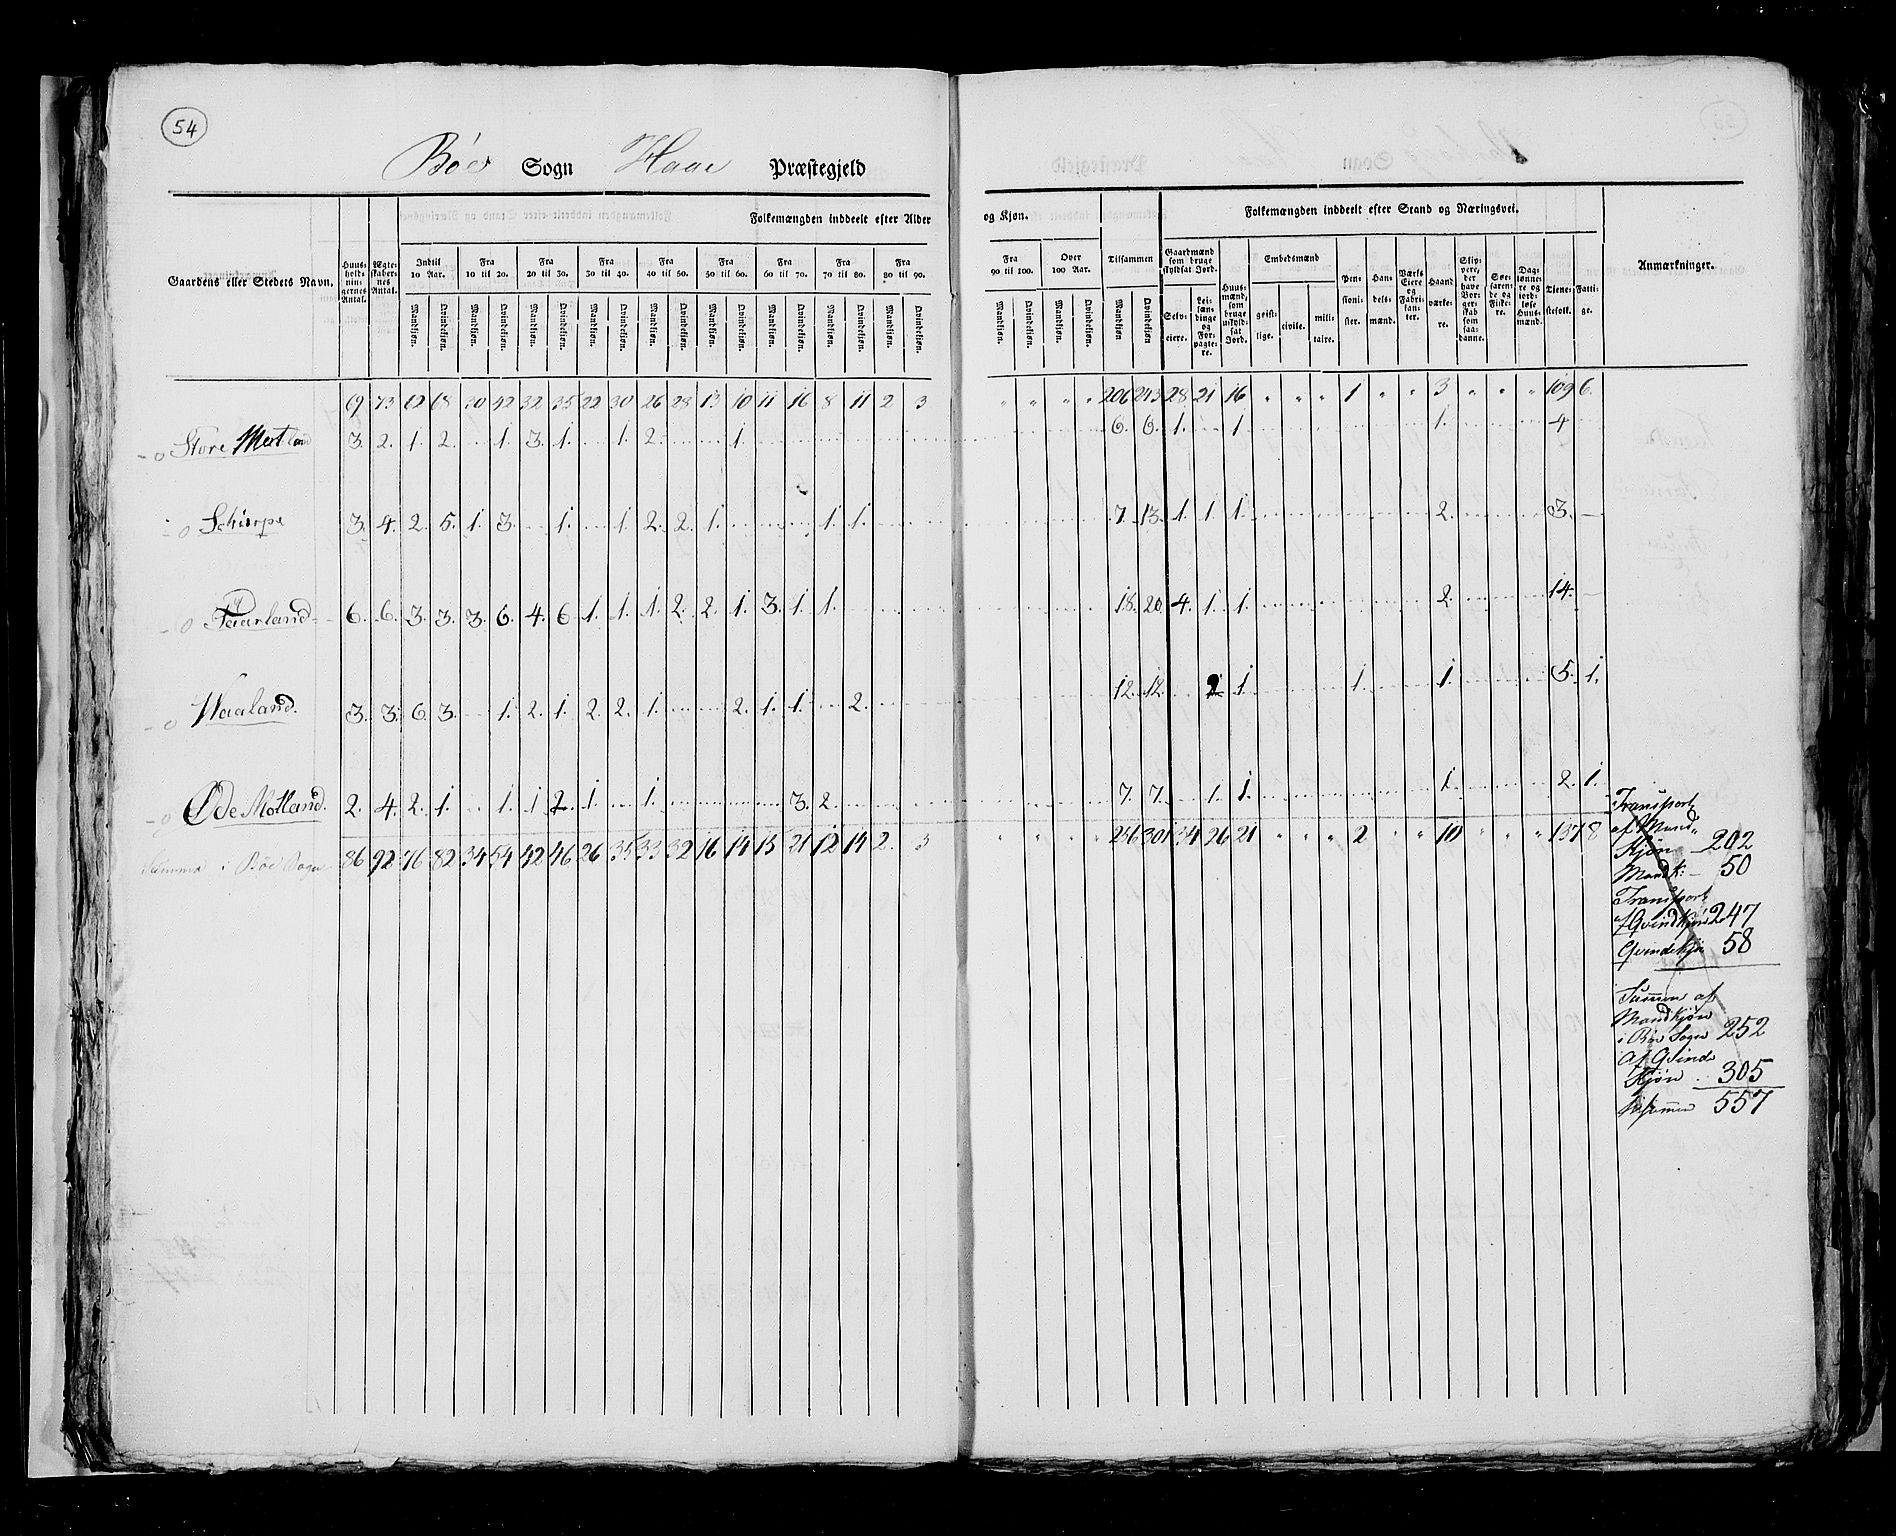 54
Bøe Sogn Haae Præstegjeld
Gaardens eller Stedets Navn.
Huusholdningernes Antal.
Ægteskabernes Antal.
Folkemængden inddeelt efter Alder og Kjøn.
Indtil 10 Aar. Fra 10 til 20. Fra 20 til 30. Fra 30 til 40. Fra 40 til 50. Fra 50 til 60. Fra 60 til 70. Fra 70 til 80. Fra 80 til 90. Fra 90 til 100. Over 100 Aar. Tilsammen
Mandkjøn. Qvindekjøn. Mandkjøn. Qvindekjøn. Mandkjøn. Qvindekjøn. Mandkjøn. Qvindekjøn. Mandkjøn. Qvindekjøn. Mandkjøn. Qvindekjøn. Mandkjøn. Qvindekjøn. Mandkjøn. Qvindekjøn. Mandkjøn. Qvindekjøn. Mandkjøn. Qvindekjøn. Mandkjøn. Qvindekjøn. Mandkjøn. Qvindekjøn.
Folkemængden inddeelt efter Stand og Næringsvei.
Gaardmænd som bruge skyldsat Jord.
Selveiere.
Leilændinge og Forpagtere.
Huusmænd, som bruge uskyldsat Jord.
Embedsmænd
geistlige. civile. militaire.
Pensionister.
Handelsmænd.
Værks Eiere og Fabrikanter.
Haandværkere.
Skippere, der have Borgerskab som saadanne.
Søefarende og Fiskere.
Daglønnere og jordløse Huusmænd.
Tjenestefolk.
Fattige.
Anmærkninger.
69 73 62 68 30 42 32 35 22 30 26 28 13 10 11 16 8 11 2 3 " " " " 206 243 28 21 16 " " " 1 " " 3 " " " 109 6.
Store Motland 3. 2. 1. 2. 1. 3. 1. 1. 2. 1. 6. 6. 1. 1. 1. 4
Schierpe 3. 4. 2. 5. 1. 3. 1. 1. 2. 2. 1. 1. 1. 7. 13. 1. 1. 1. 2. 3.
Fiarland 6. 6. 3. 3. 3. 6. 4. 6 1. 1. 1. 2. 2. 1. 3. 1. 1. 18. 20. 4. 1. 1. 2. 14.
Waaland. 3. 3. 6. 3. 1. 2. 1. 2. 2. 1. 2. 1. 1. 2. 12. 12. 2 1. 1. 1. 5. 1.
Øde Motland. 2. 4. 2. 1. 1. 1 2. 1. 1. 3. 2. 7. 7. 1. 1. 1. 2. 1.
Summa i Bøe Sogn 86 92 76 82 34 54 42 46 26 35 33 32 16 14 15 21 12 14 2. 3 " " " " 256 301 34 26 21 " " " 2 " " 10 " " " 137 8
Transport
af Mand-
Kjøn 202
Mandk: 50
Transport
af Qvindkjøn 247
Qvindekjø 58
Summen af
Mandkjøn
i Bøe Sogn 252
Af Qvind
Kjøn 305
557